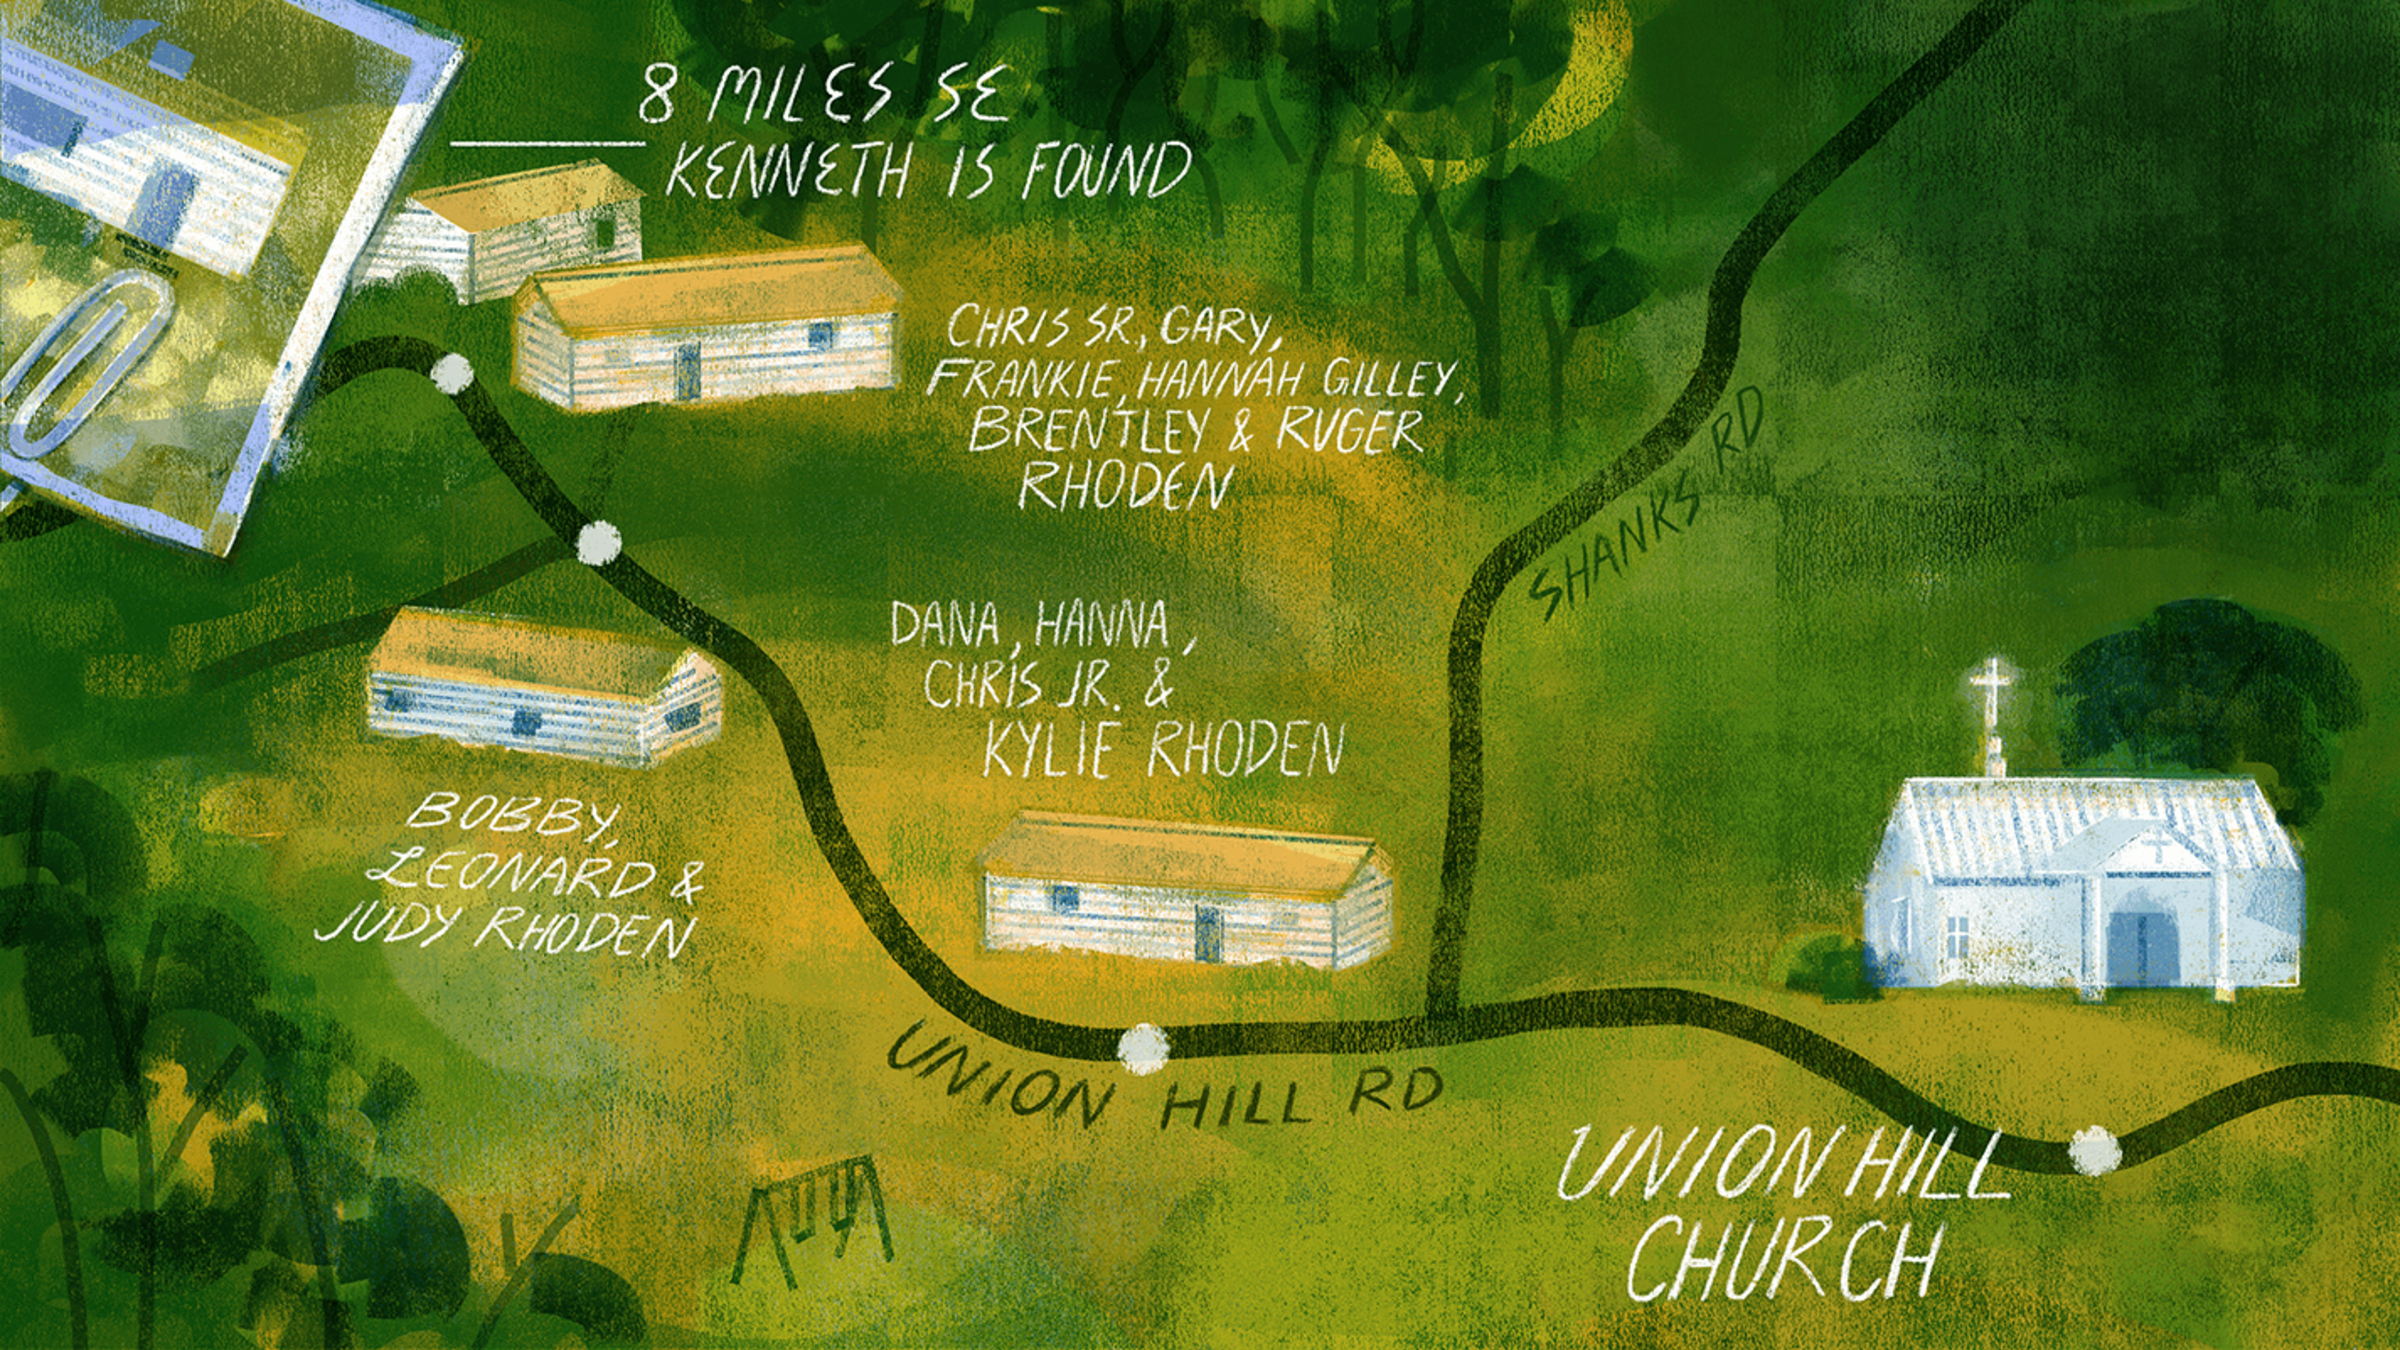 8 MILES SE
KENNETH IS FOUND
CHRIS SR., GARY,
FRANKIE, HANNAH GILLEY,
BRENTLEY & RUGER
RHODEN
SHANKS RD
DANA, HANNA,
CHRIS JR. &
KYLIE RHODEN
BOBBY,
LEONARD &
JUDY RHODEN
UNION HILL RD
UNION HILL
CHURCH